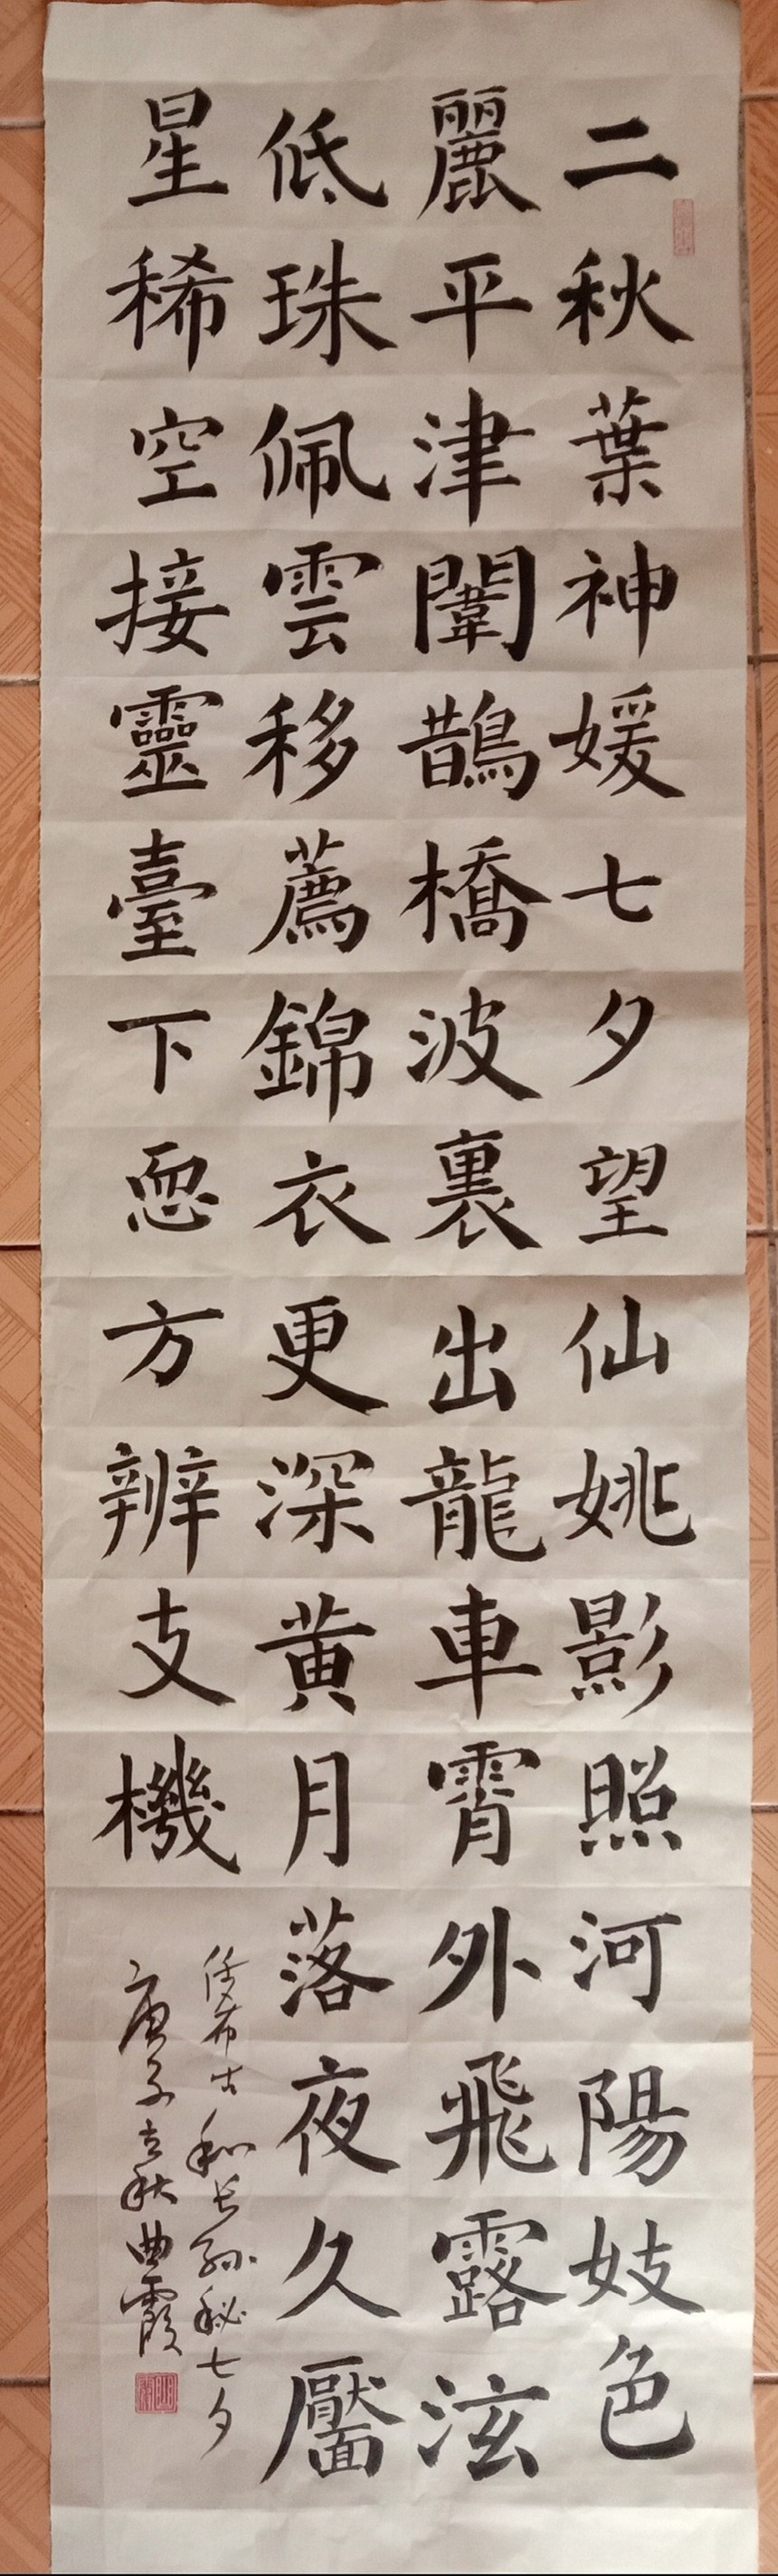 二秋葉神媛七夕望仙姚影照河陽妓色
麗平津闈鵲橋波裏出龍車霄外飛露泫
低珠佩雲移薦錦衣更深黄月落夜久靨
星稀空接靈臺下恧方辨支機
任希古和长孫秘七夕
庚子立秋曲霞